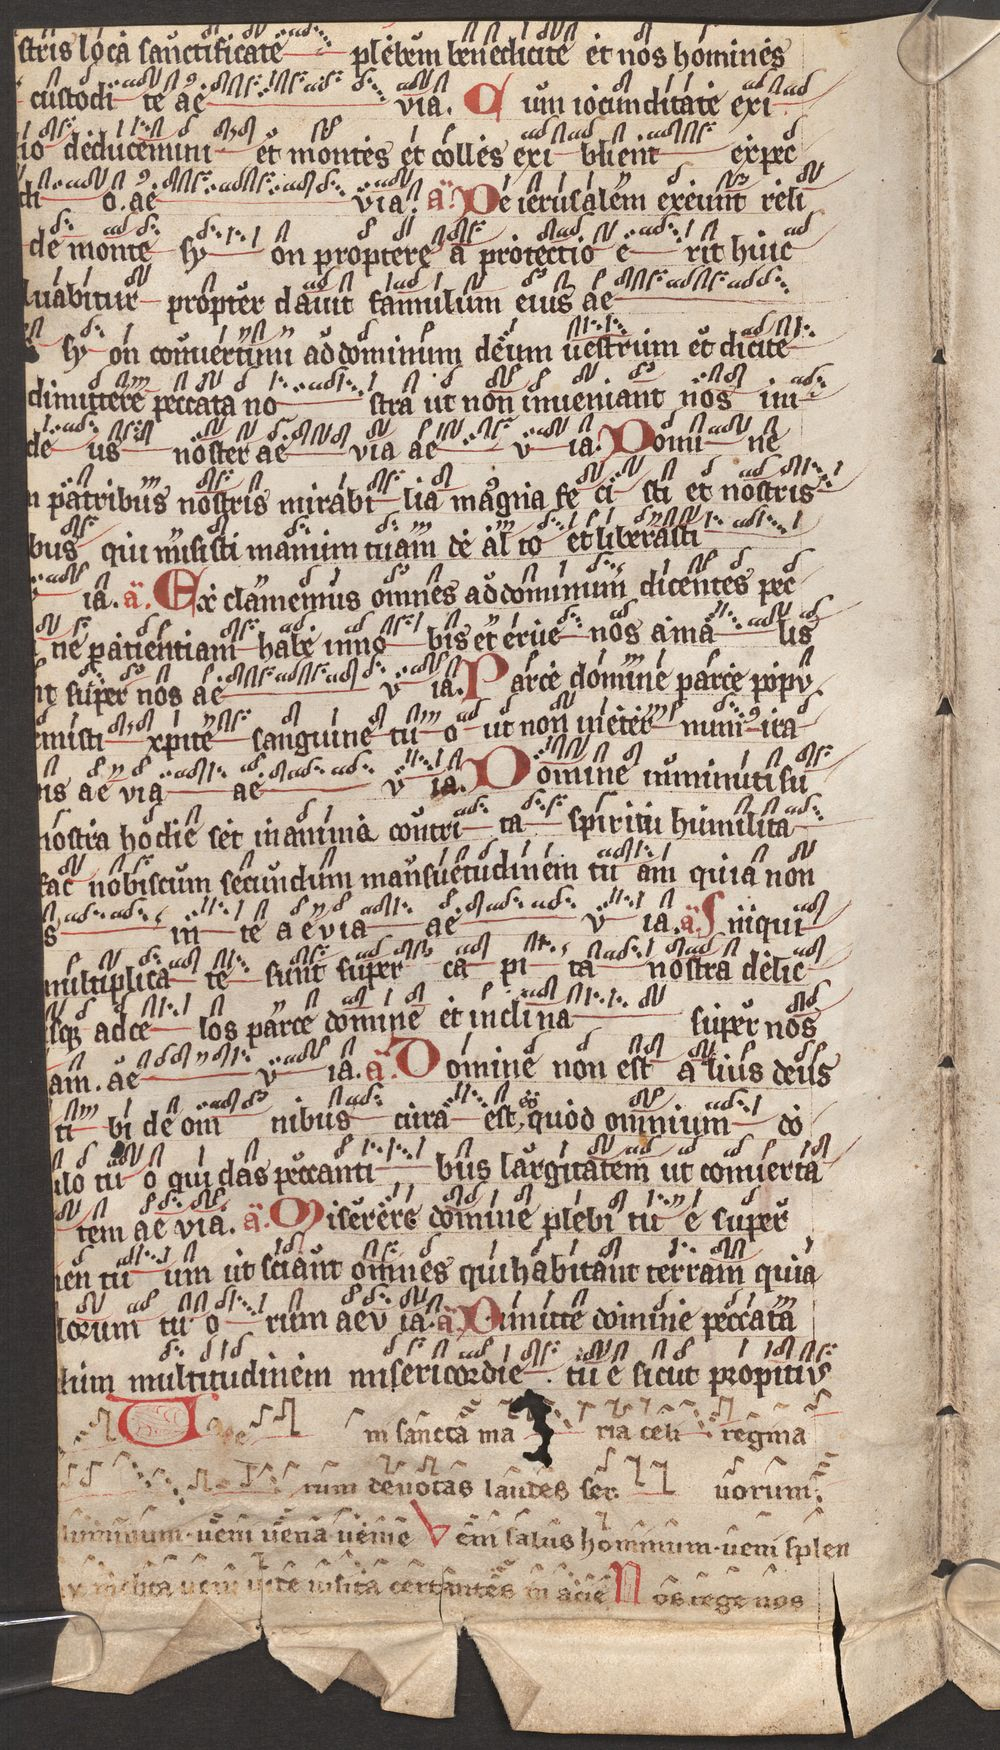 stris loca sanctificate plebem benedicite et nos homines
custodi te ae via. Cum iocunditate exi
deducemini et montes et colles exi blient expec
o. ae via. a. De ierusalem exeunt reli
de monte sy on propterea protectio e rit huic
propter dauit famulum eius ae
sy on conuertimini ad dominum deum uestrum et dicite
dimittere peccata no stra ut non inueniant nos ini
de us noster ae via ae v ia. Domi ne
patribus nostris mirabi lia magna fe ci sti et nostris
bus qui misisti manum tuam de al to et liberasti
ia. a. Ex clamemus omnes ad dominum dicentes pec
ne patientiam habe in no bis et erue nos a ma lis
super nos ae v ia. Parce domine parce popu
misti xpite sanguine tu o ut non in eter num ira
is ae via ae v ia. Domine inminuti su
nostra hodie set in anima contri ta spiritu humilita
fac nobiscum secundum mansuetudinem tu am quia non
s in te a e via ae v ia. a. Iniqui
multiplica te sunt super ca pi ta nostra delic
ad ce los parce domine et inclina super nos
am. ae v ia. a. Domine non est a lius deus
ti bi de om nibus cura est quod omnium do
tu o qui das peccanti bus largitatem ut conuerta
tem ae via. a. Miserere domine plebi tu e super
en tu um ut sciant omnes qui habitant terram quia
lorum tu o rum ae v ia. a. Dimitte domine peccata
multitudinem misericordie tu e sicut propitius
in sancta ma ria celi regina
rum deuotas laudes ser uorum
luminum. ueni uena uenie Veni salus hominum. ueni splen
inclita ueni uite uisita certantes in acie Nos rege nos